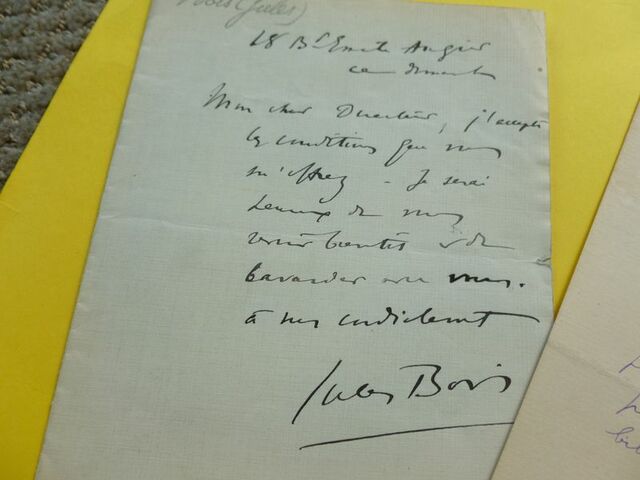 Bois (Jules)
18 Bd Emile Augier
ce dimanche
Mon cher Directeur, j'accepte
les conditions que vous
m'offrez - Je serai
heureux de vous
voir bientôt et de
bavarder avec vous.
à vous cordialement
Jules Bois